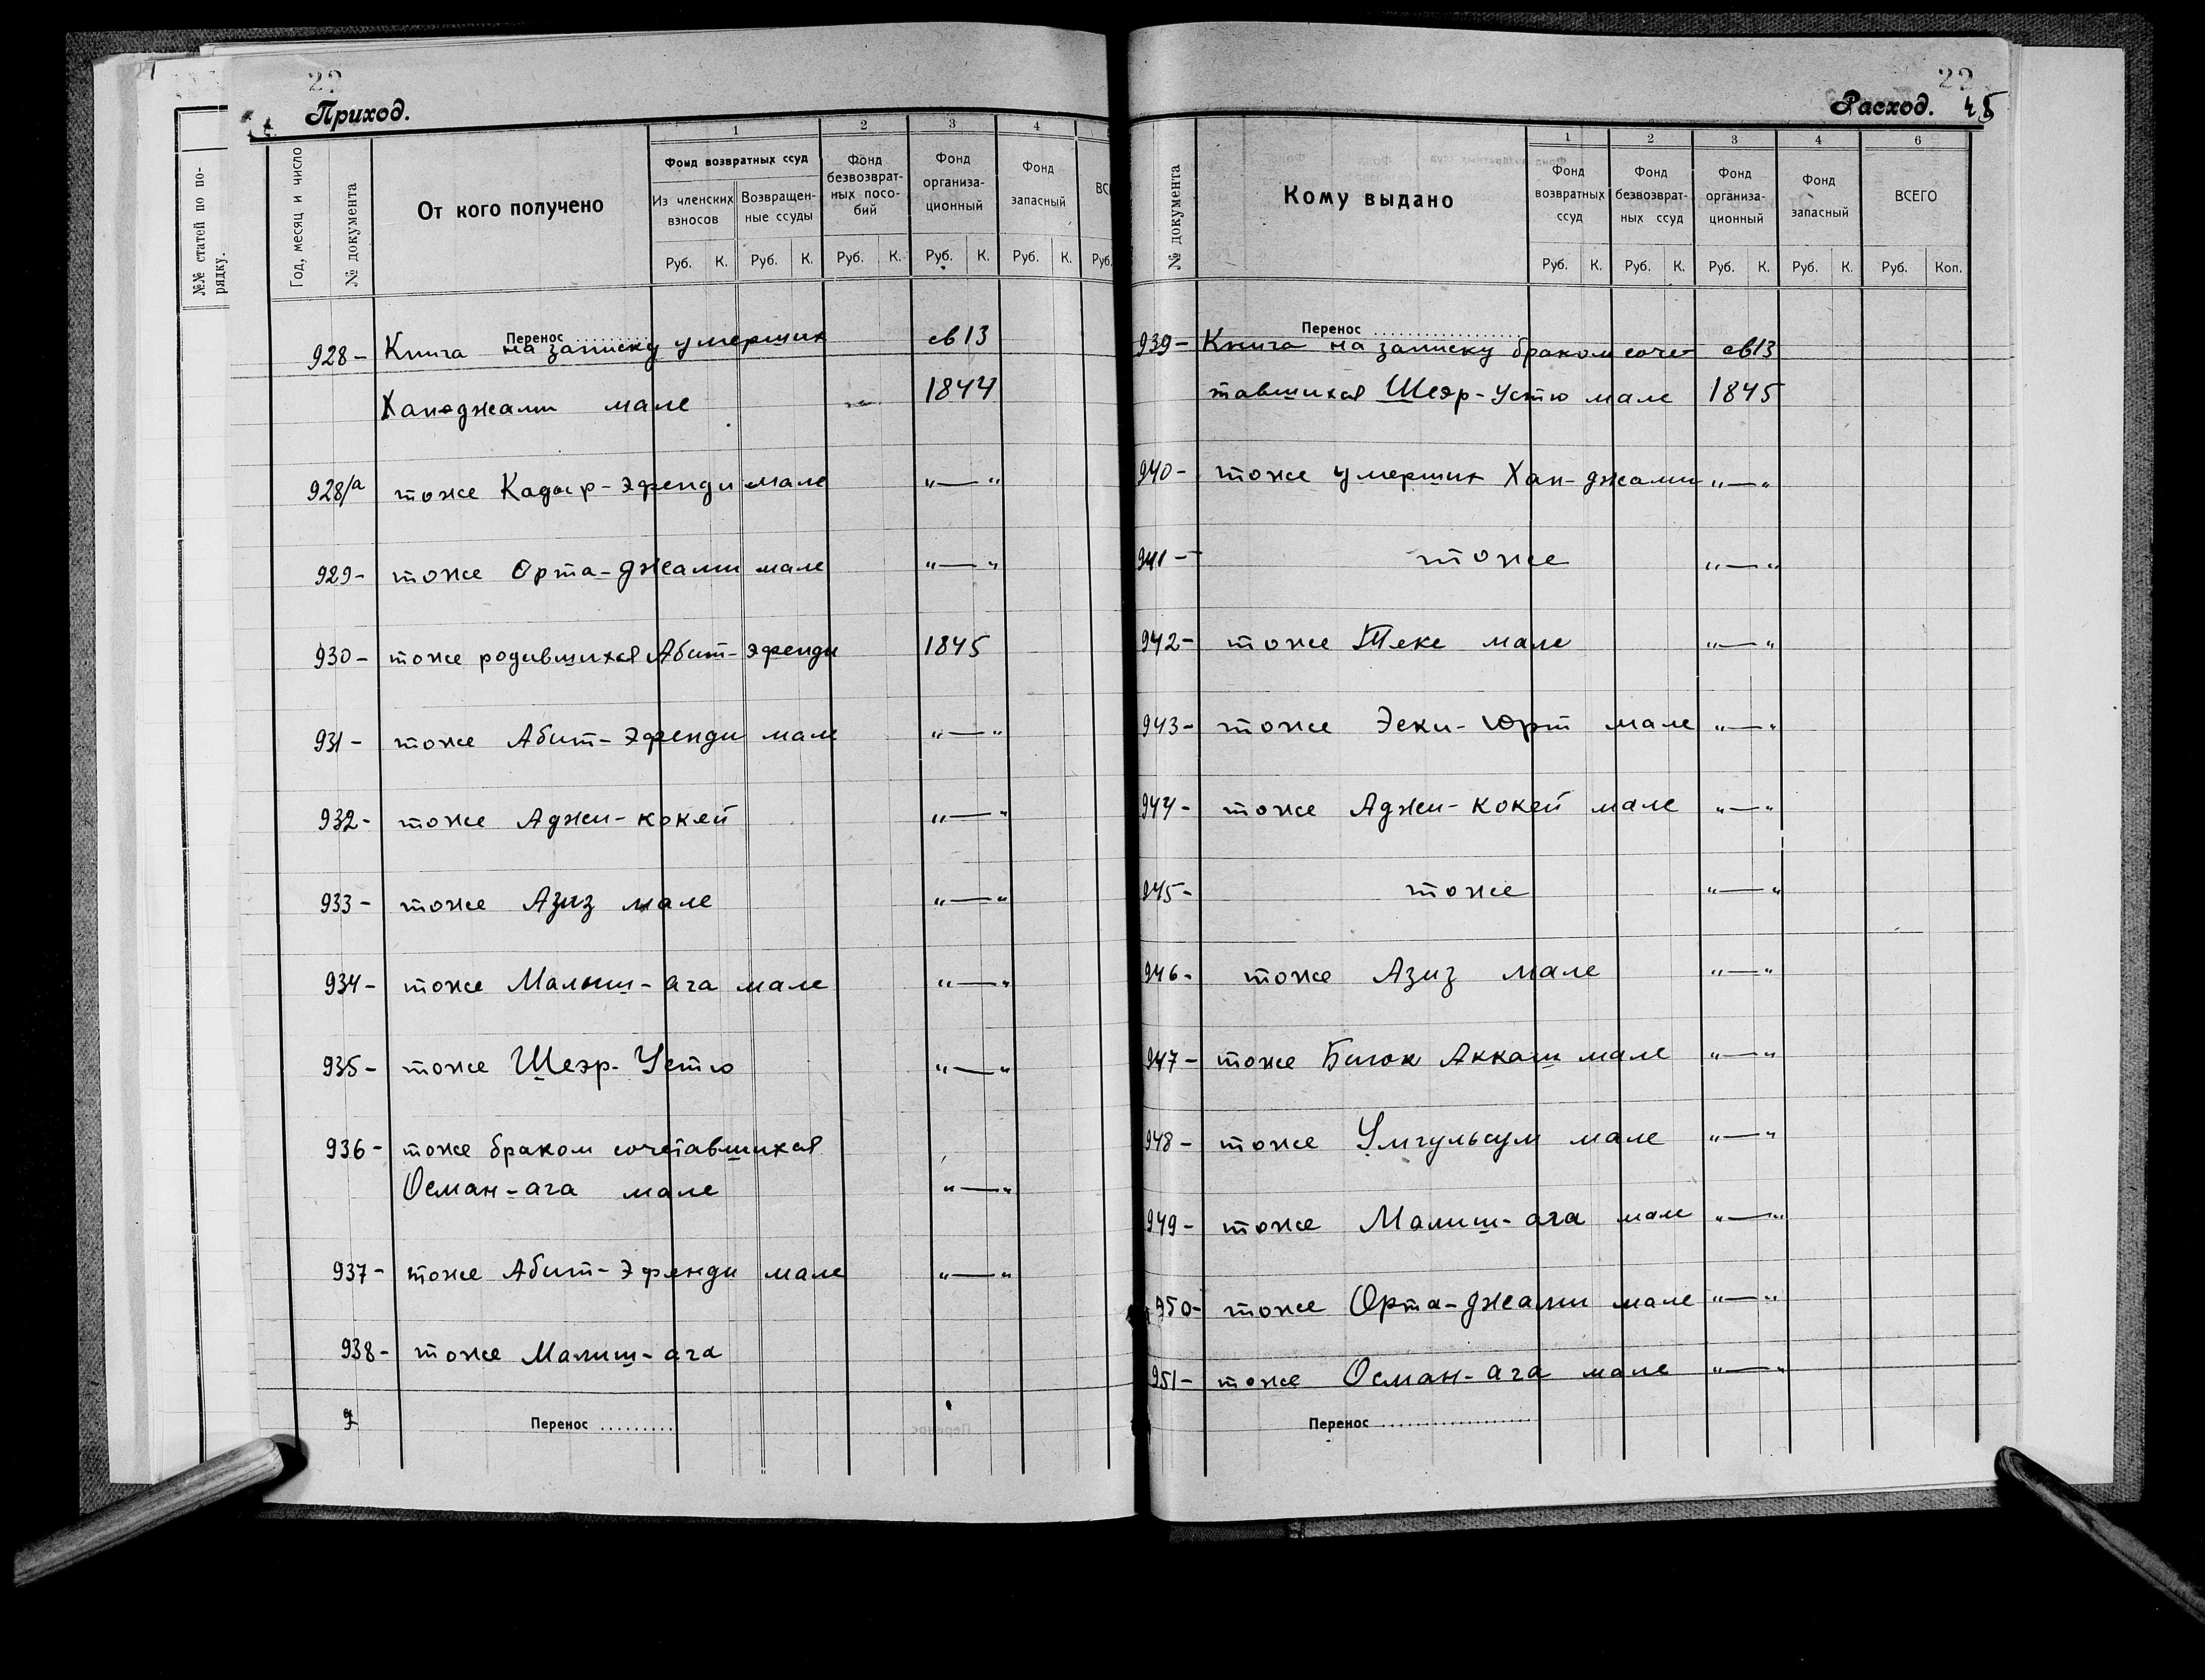 22
Приход.
№№ статей по порядку.
Год, месяц и число
№ документа
От кого получено
1
Фонд возвратных ссуд
Из членских взносов
Возвращенные ссуды
2
Фонд безвозвратных пособий
3
Фонд организационный
4
Фонд запасный
Руб. К. Руб. К. Руб. К. Руб. К. Руб. К. Руб.
Перенос
928 - Книга на записку умерших св 13
Хан-джами мале 1844
928/а тоже Кадыр-эфенди мале "—"
929 - тоже Орта-джами мале "—"
930 - тоже родившихся Абит-эфенди 1845
931 - тоже Абит-эфенди мале "—"
932 - тоже Аджи-кокей "—"
933 - тоже Азиз мале "—"
934 - тоже Малыш-ага мале "—"
935 - тоже Шеэр-Устю "—"
936 - тоже браком сочетавшихся
Осман-ага мале "—"
937 - тоже Абит-Эфенди мале "—"
938 - тоже Малиш-ага
Перенос
22
Расход. 45
№ документа
Кому выдано
1
Фонд возвратных ссуд
2
Фонд безвозвратных ссуд
3
Фонд организационный
4
Фонд запасный
6
ВСЕГО
Руб. К. Руб. К. Руб. К. Руб. К. Руб. Коп.
Перенос
939 - Книга на записку браком соче- св 13
тавшихся Шеэр-Устю мале 1845
940 - тоже умерших Хан-джами "—"
941 - тоже "—"
942 - тоже Теке мале "—"
943 - тоже Эски-Юрт мале "—"
944 - тоже Аджи-кокей мале "—"
945 - тоже "—"
946 - тоже Азиз мале "—"
947 - тоже Биюк Аккаш мале "—"
948 - тоже Умгульсум мале "—"
949 - тоже Малиш-ага мале "—"
950 - тоже Орта-джами мале "—"
951 - тоже Осман-ага мале "—"
Перенос